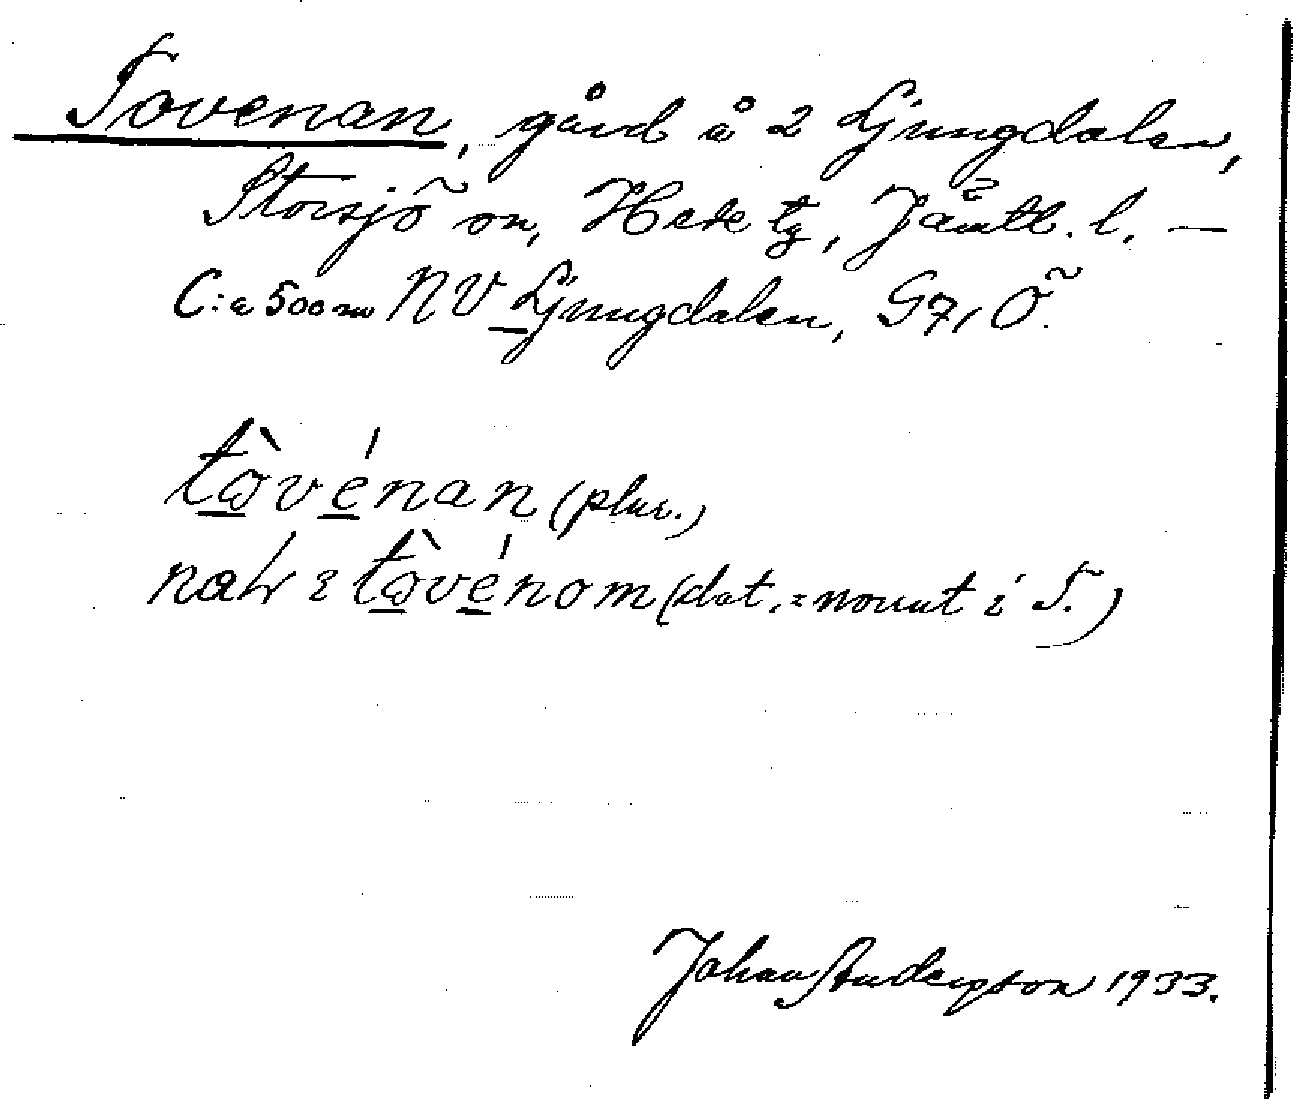 Tovenan, gård å 2 Ljungdalen,
Storsjö sn, Hede tg, Jämtl. l. —
C:a 500 m NV Ljungdalen, G7, Ö.
tòvénan (plur.)
tòvénom (dat. = norrut i T.)
Johan Anderson 1933.